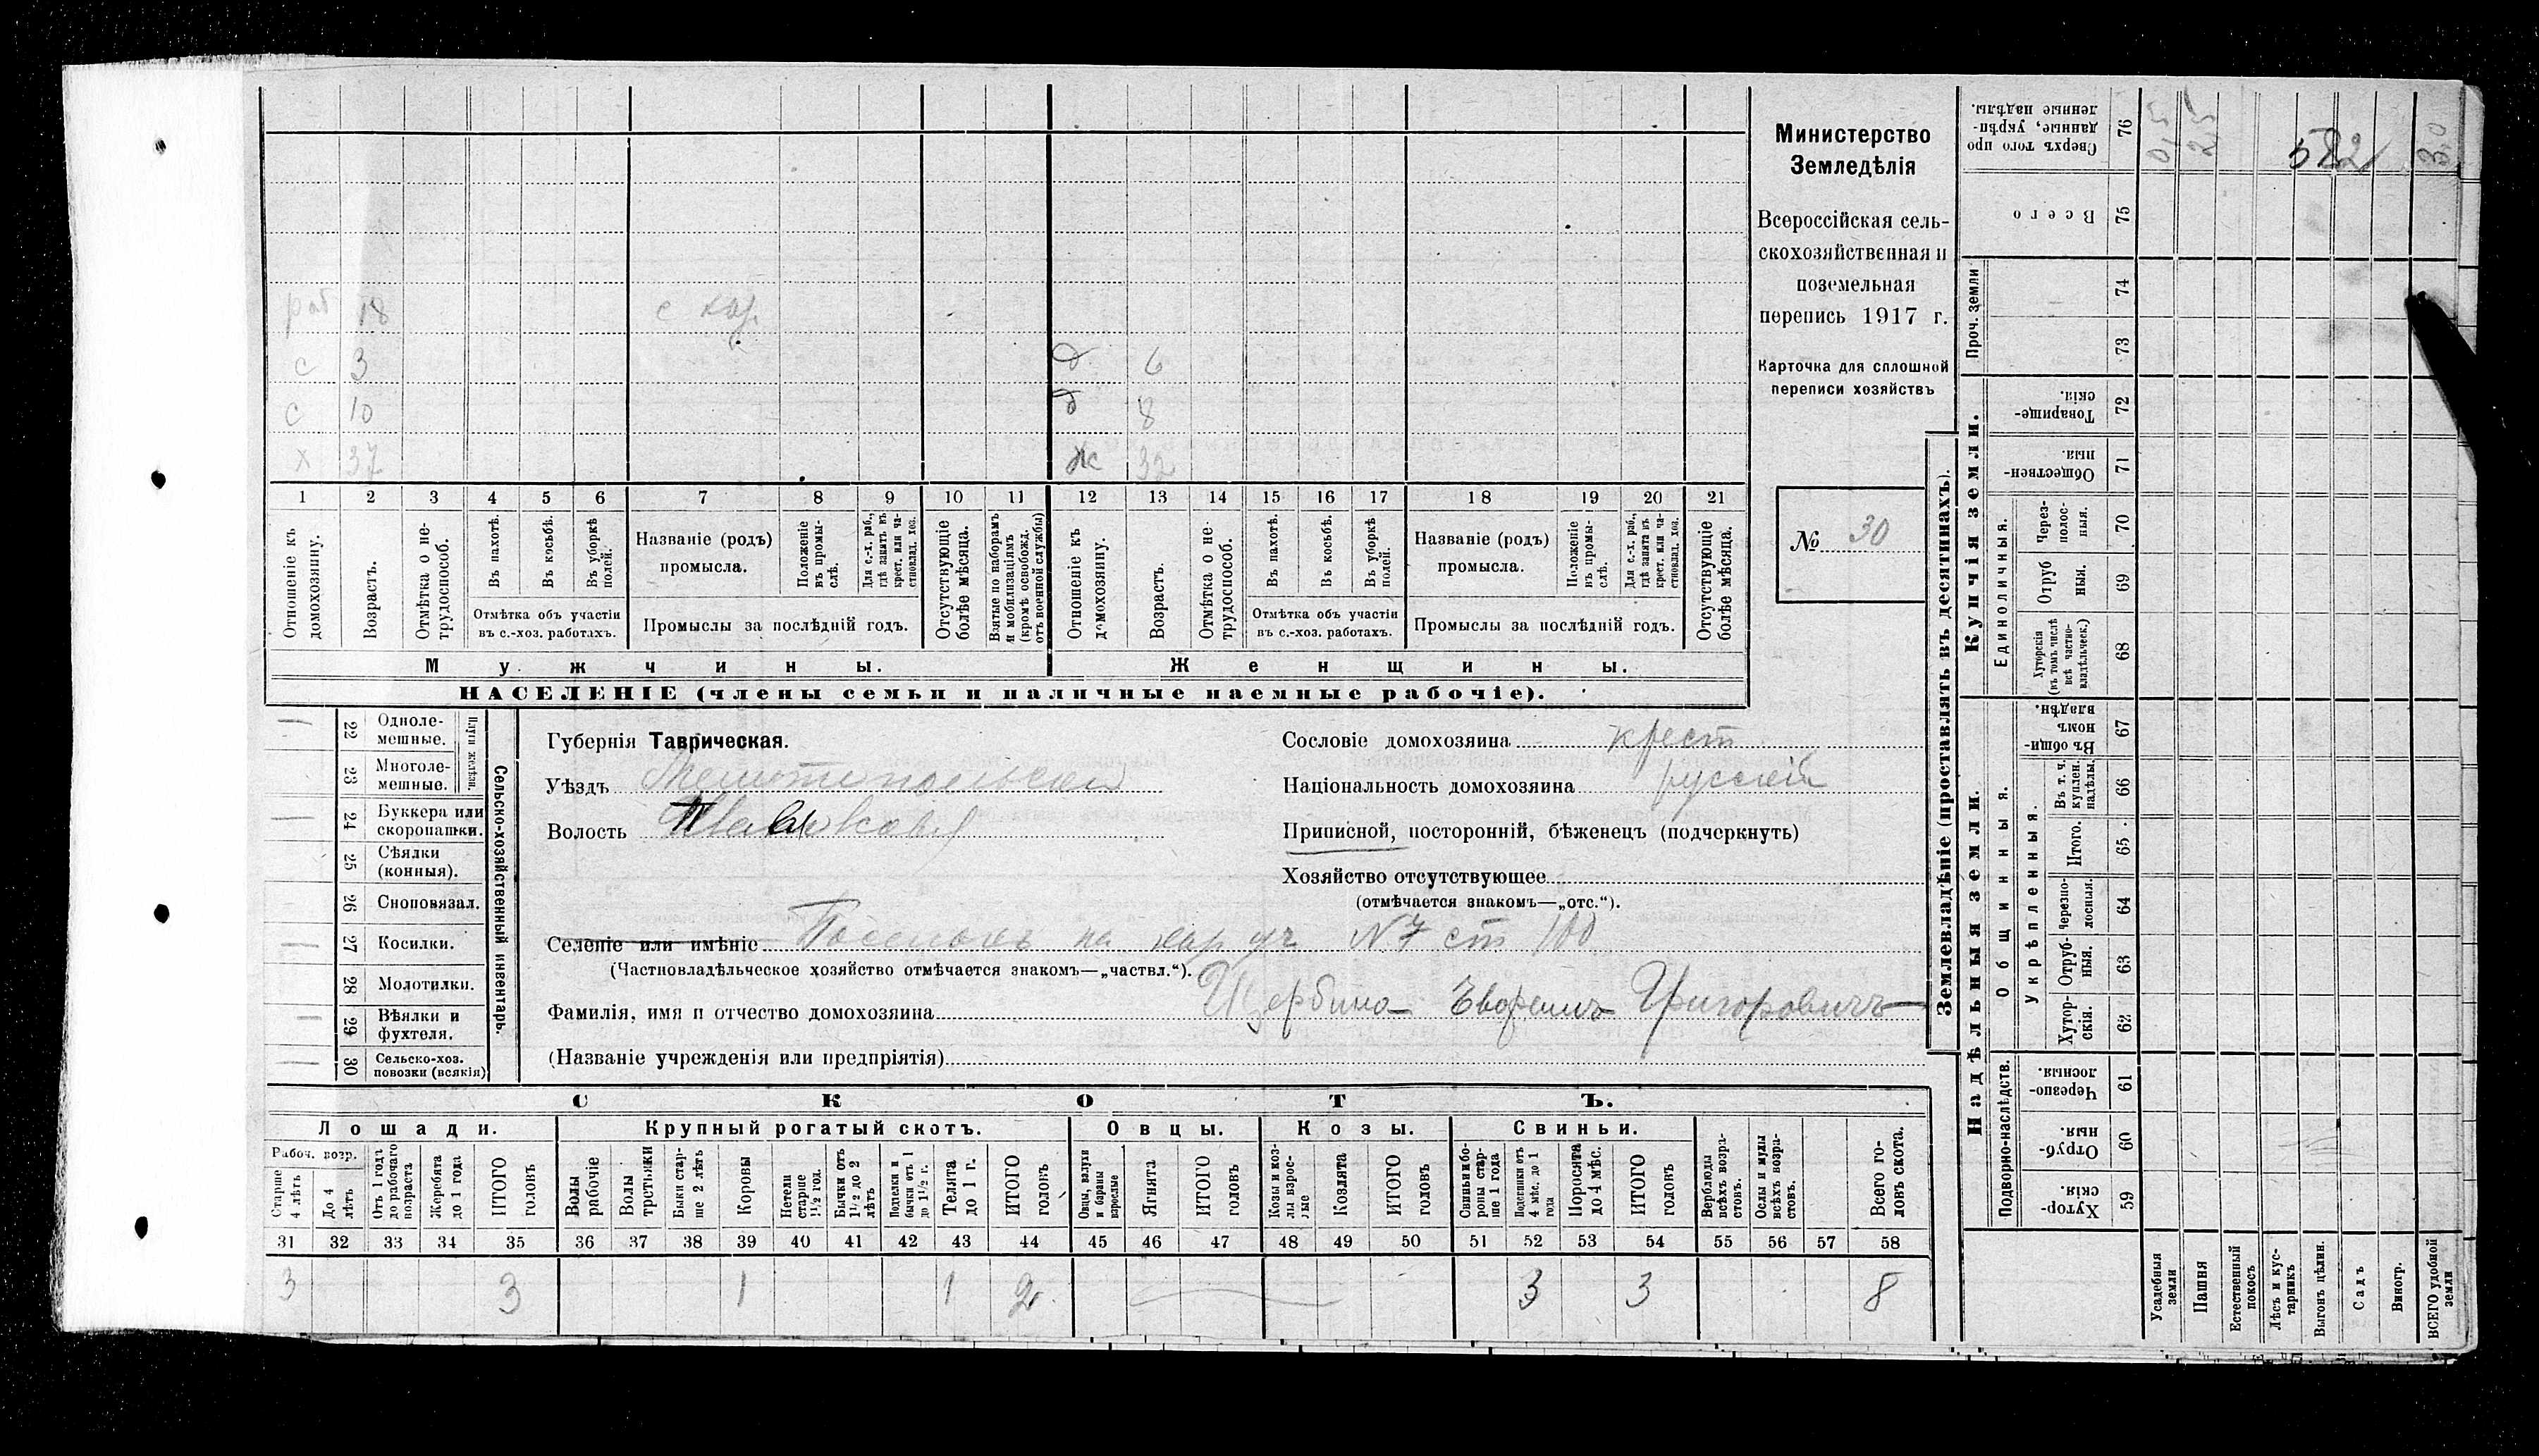 Министерство
Земледѣлія
Всероссійская сель-
скохозяйственная и
поземельная
перепись 1917 г.
Карточка для сплошной
переписи хозяйствъ
№ 30
раб 18
с 3 д 6
с 10 д 8
х 37 ж 32
1 2 3 4 5 6 7 8 9 10 11 12 13 14 15 16 17 18 19 20 21
Отношеніе къ домохозяину.
Возрастъ.
Отмѣтка о не-трудоспособ.
Въ пахотѣ.
Въ косьбѣ.
Въ уборкѣ полей.
Отмѣтка объ участіи
въ с.-хоз. работахъ.
Названіе (родъ)
промысла.
Положеніе въ промы-слѣ.
Для с.-х. раб., гдѣ занятъ въ крест. или ча-стновлад. хоз.
Промыслы за послѣдній годъ.
Отсутствующіе болѣе мѣсяца.
Взятые по наборамъ и мобилизаціямъ (кромѣ освобожд. отъ военной службы)
Отношеніе къ домохозяину.
Возрастъ.
Отмѣтка о не-трудоспособ.
Въ пахотѣ.
Въ косьбѣ.
Въ уборкѣ полей.
Отмѣтка объ участіи
въ с.-хоз. работахъ.
Названіе (родъ)
промысла.
Положеніе въ промы-слѣ.
Для с.-х. раб., гдѣ занята въ крест. или ча-стновлад. хоз.
Промыслы за послѣдній годъ.
Отсутствующіе болѣе мѣсяца.
Мужчины. Женщины.
НАСЕЛЕНІЕ (члены семьи и наличные наемные рабочіе).
Сельско-хозяйственный инвентарь.
Плуги желѣзн.
22 Одноле-мешные.
23 Многоле-мешные.
24 Буккера или скоропашки.
25 Сѣялки (конныя).
26 Сноповязал.
27 Косилки.
28 Молотилки.
29 Вѣялки и фухтеля.
30 Сельско-хоз. повозки (всякія)
Губернія Таврическая.
Уѣздъ Мелитопольскій
Волость
Селеніе или имѣніе Поселокъ на № 7 ст 100
(Частновладѣльческое хозяйство отмѣчается знакомъ—„частвл.“).
Фамилія, имя и отчество домохозяина Щербина Григоровичъ
(Названіе учрежденія или предпріятія)
Сословіе домохозяина крест
Національность домохозяина русскій
Приписной, посторонній, бѣженецъ (подчеркнуть)
Хозяйство отсутствующее
(отмѣчается знакомъ—„отс.“).
СКОТЪ.
Лошади. Крупный рогатый скотъ. Овцы. Козы. Свиньи.
Рабоч. возр.
Старше 4 лѣтъ
До 4 лѣтъ
Отъ 1 годъ до рабочаго возраста
Жеребята до 1 года
ИТОГО головъ
Волы рабочіе
Волы третьяки
Быки стар-ше 2 лѣтъ
Коровы
Нетели старше 1½ год.
Бычки отъ 1½ до 2 лѣтъ
Подтелки и бычки отъ 1 до 1½ г.
Телята до 1 г.
ИТОГО головъ
Овцы, валухи и бараны взрослые
Ягнята
ИТОГО головъ
Козы и коз-лы взрос-лые
Козлята
ИТОГО головъ
Свиньи и бо-ровы стар-ше 1 года
Подсвинки отъ 4 мѣс. до 1 года
Поросята до 4 мѣс.
ИТОГО головъ
Верблюды всѣхъ возра-стовъ.
Ослы и мулы всѣхъ возра-стовъ.
Всего го-ловъ скота.
31 32 33 34 35 36 37 38 39 40 41 42 43 44 45 46 47 48 49 50 51 52 53 54 55 56 57 58
3 3 1 1 2 3 3 8
Землевладѣніе (проставлять въ десятинахъ).
Купчія земли.
Надѣльныя земли.
Проч. земли
Единоличныя.
Общинныя.
Укрѣпленныя.
Подворно-наслѣдств.
Сверхъ того про данные, укрѣп-ленные надѣлы. 76
Всего 75
74
73
Товарище-скія. 72
Обществен-ныя. 71
Через-полос-ныя. 70
Отруб ныя. 69
Хуторскія (въ томъ числѣ всѣ частно-владѣльческ.) 68
Въ общи-номъ владѣн. 67
Въ т. ч. куплен. надѣлы. 66
Итого. 65
Черезпо-лосныя. 64
Отруб-ныя. 63
Хутор-скія. 62
Черезпо-лосныя. 61
Отруб-ныя. 60
Хутор-скія. 59
Усадебныя земли 0,5
Пашня 2,5
Естественный покосъ
Лѣсъ и кус-тарникъ
Выгонъ цѣлин.
Садъ
Виногр.
ВСЕГО удобной земли 3,0